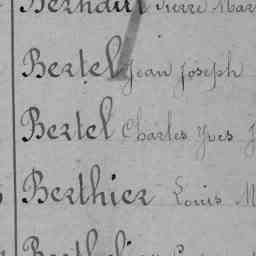 Pierre Mar
Bertel Jean Joseph
Bertel Charles Yves J
Berthier Louis M